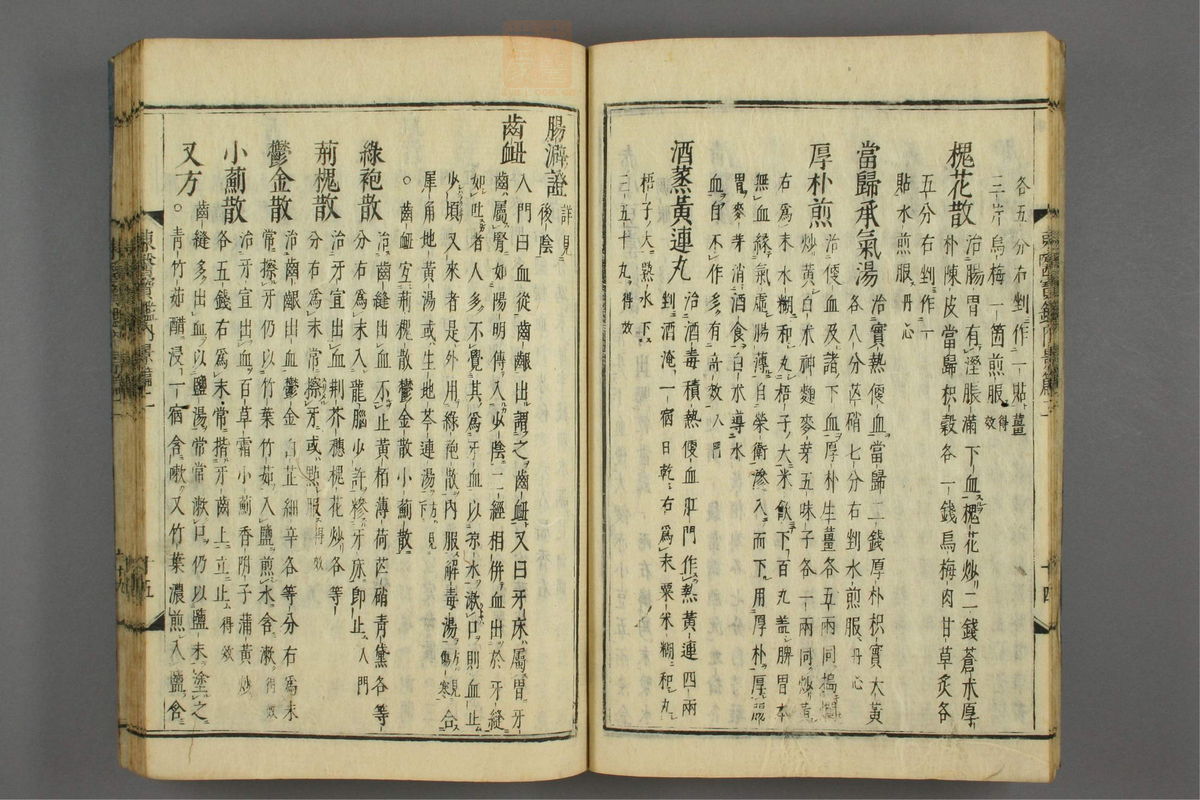 各五分右剉作一貼薑
三片烏梅一箇煎服得效
槐花散
治腸胃有濕脹滿下血槐花炒二錢蒼朮厚
朴陳皮當歸枳殼各一錢烏梅肉甘草炙各
五分右剉作一
貼水煎服丹心
當歸承氣湯
治實熱便血當歸二錢厚朴枳實大黃
各八分芒硝七分右剉水煎服丹心
厚朴煎
治便血及諸下血厚朴生薑各五兩同搗爛
炒黃白朮神麴麥芽五味子各一兩同炒黃
右爲末水糊和丸梧子大米飮下百丸盖脾胃本
無血緣氣虛腸薄自榮衛滲入而下用厚朴厚腸
胃麥芽消酒食白朮導水
血自不作多有奇效入門
酒蒸黃連丸
治酒毒積熱便血肛門作熱黃連四兩
剉酒淹一宿日乾右爲末粟米糊和丸
梧子大熟水下
三五十丸得效
腸澼證
詳見
後陰
齒衄
入門曰血從齒齦出謂之齒衄又曰牙床屬胃牙
齒屬腎如陽明傳入少陰二經相併血出於牙縫
如吐者人多不覺其爲牙血以凉水漱口則血止
少頃又來者是外用綠袍散內服解毒湯方見傷寒合
犀角地黃湯或生地芩連湯方見
下
○齒衄宜荊槐散鬱金散小薊散
綠袍散
治齒縫出血不止黃栢薄荷芒硝靑黛各等
分右爲末入龍腦少許糝牙床卽止入門
荊槐散
治牙宣出血荊芥穗槐花炒各等
分右爲末常擦牙或點服得效
鬱金散
治齒齦出血鬱金白芷細辛各等分右爲末
常擦牙仍以竹葉竹茹入鹽煎水含漱得效
小薊散
治牙宣出血百草霜小薊香附子蒲黃炒
各五錢右爲末常揩牙齒上立止得效
又方
齒縫多出血以鹽湯常常漱口仍以鹽末塗之
○靑竹茹醋浸一宿含嗽又竹葉濃煎入鹽含